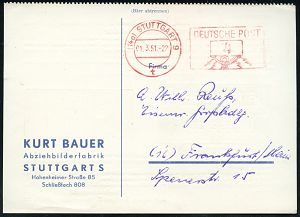 (Hier abtrennen)
(14a) STUTTGART 9
21.3.51.-22
t
DEUTSCHE POST
4
Firma
A. Willi Reuß,
KURT BAUER
Abziehbilderfabrik
STUTTGART S
Hohenheimer Straße 85
Schließfach 808
(16) Frankfurt/Main
Speuerstr. 15